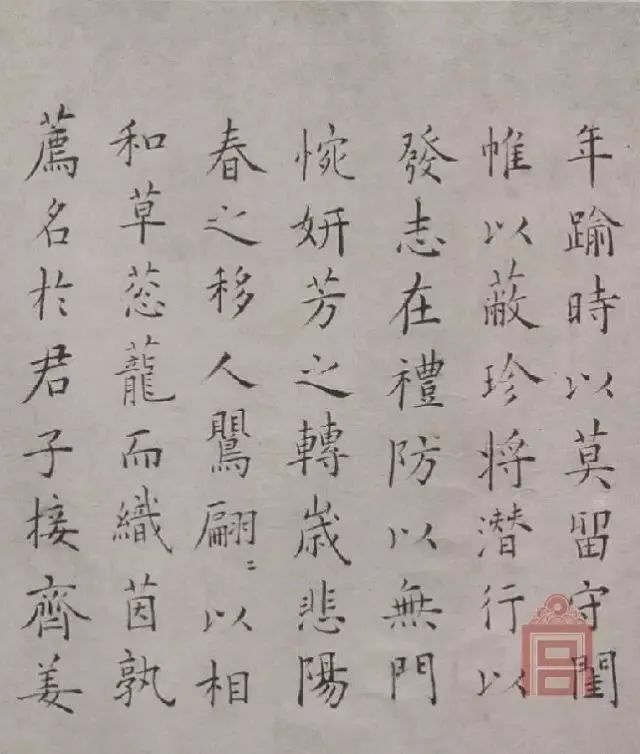 年踰時以莫留守閨
帷以蔽珍将潜行以
發志在禮防以無門
惋妍芳之轉歲悲陽
春之移人鸎翩〻以相
和草蒸蘢而織茵孰
薦名於君子接齊姜